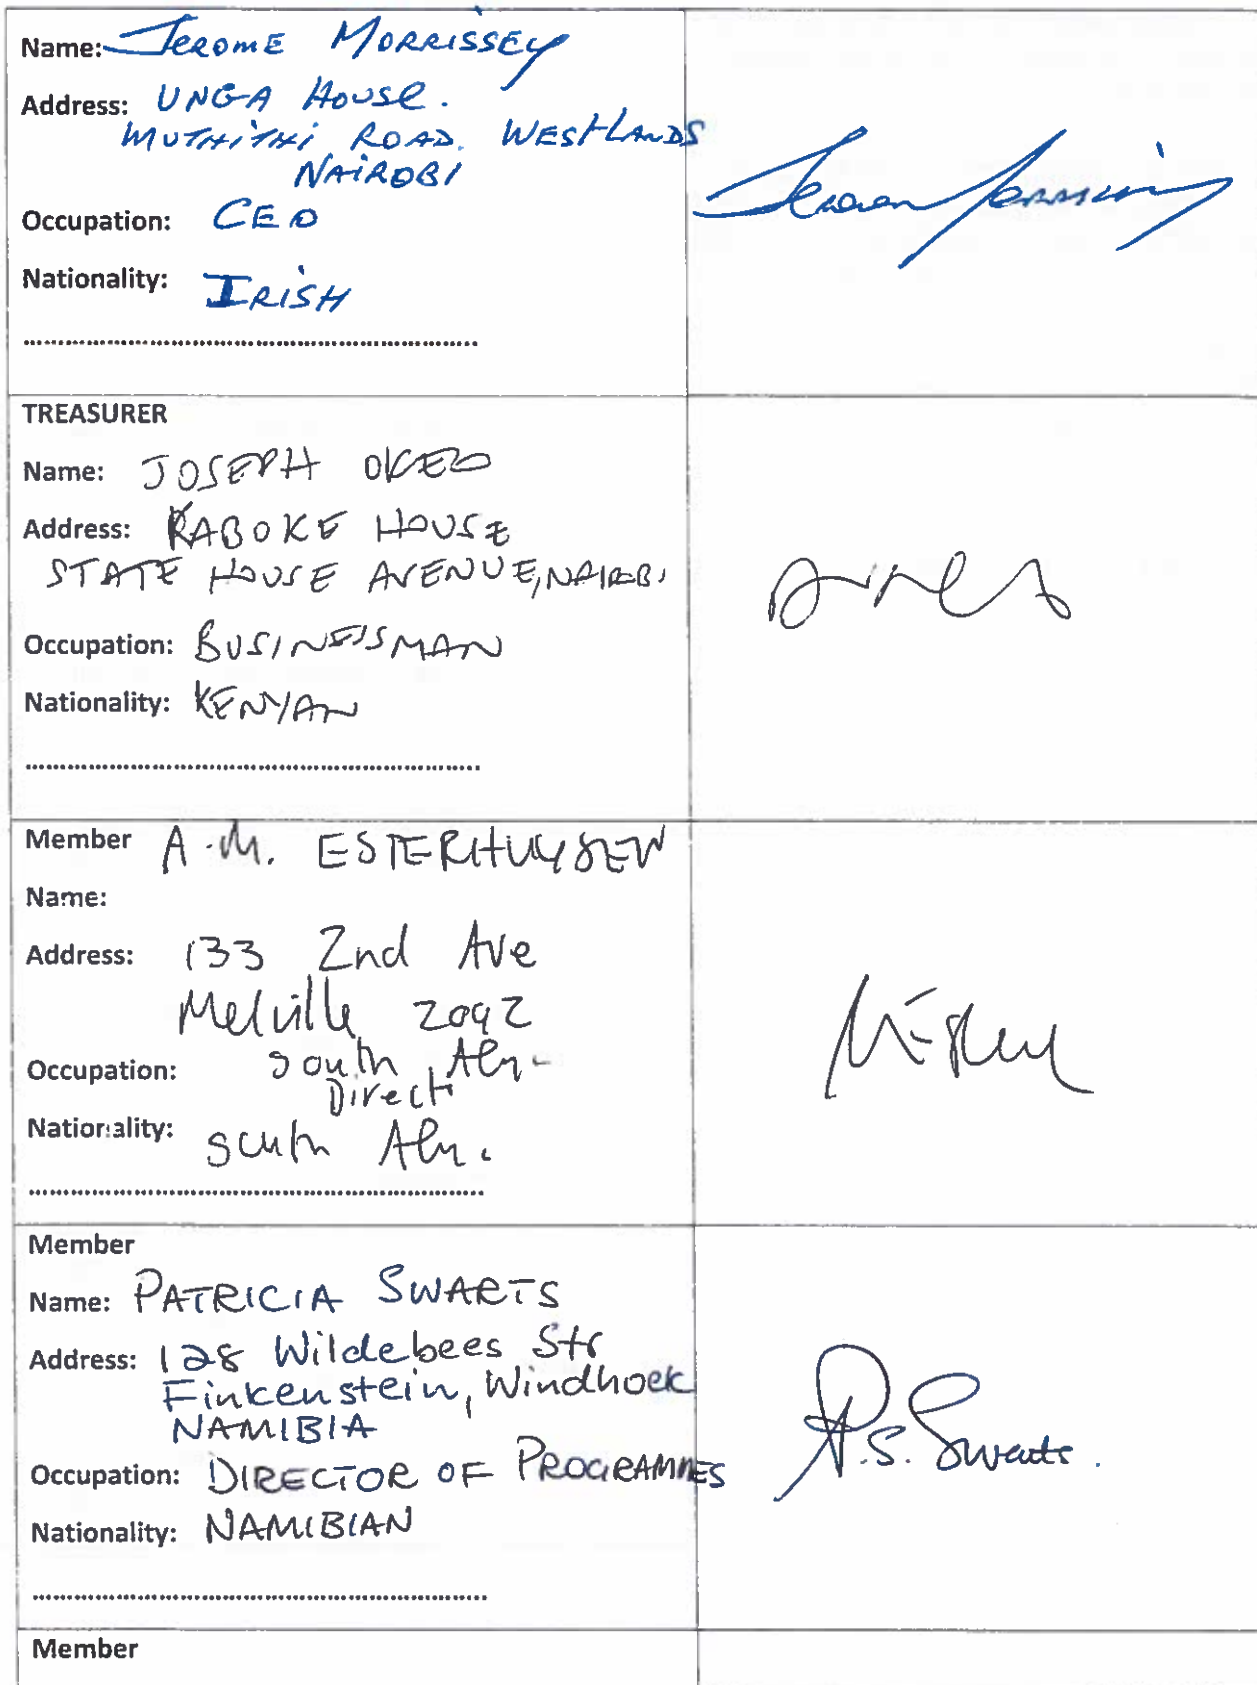 Name: Jerome Morrissey
Address: UNGA House.
MUTHiTHi ROAD. WESTLANDS
NAiROBI
Occupation: CEO
Nationality: IRiSH
TREASURER
Name: JOSEPH OKELO
Address: KABOKE HOUSE
STATE HOUSE AVENUE, NAIROBI
Occupation: BUSINESSMAN
Nationality: KENYAN
Member A.M. ESTERHUYSEN
Name:
Address: 133 2nd Ave
Melville 2092
South
Occupation:
Nationality: South
Member
Name: PATRICIA SWARTS
Address: 128 Wildebees Str
Finkenstein, Windhoek
NAMIBIA
P.S. Swarts.
Occupation: DIRECTOR OF PROGRAMMES
Nationality: NAMIBIAN
Member